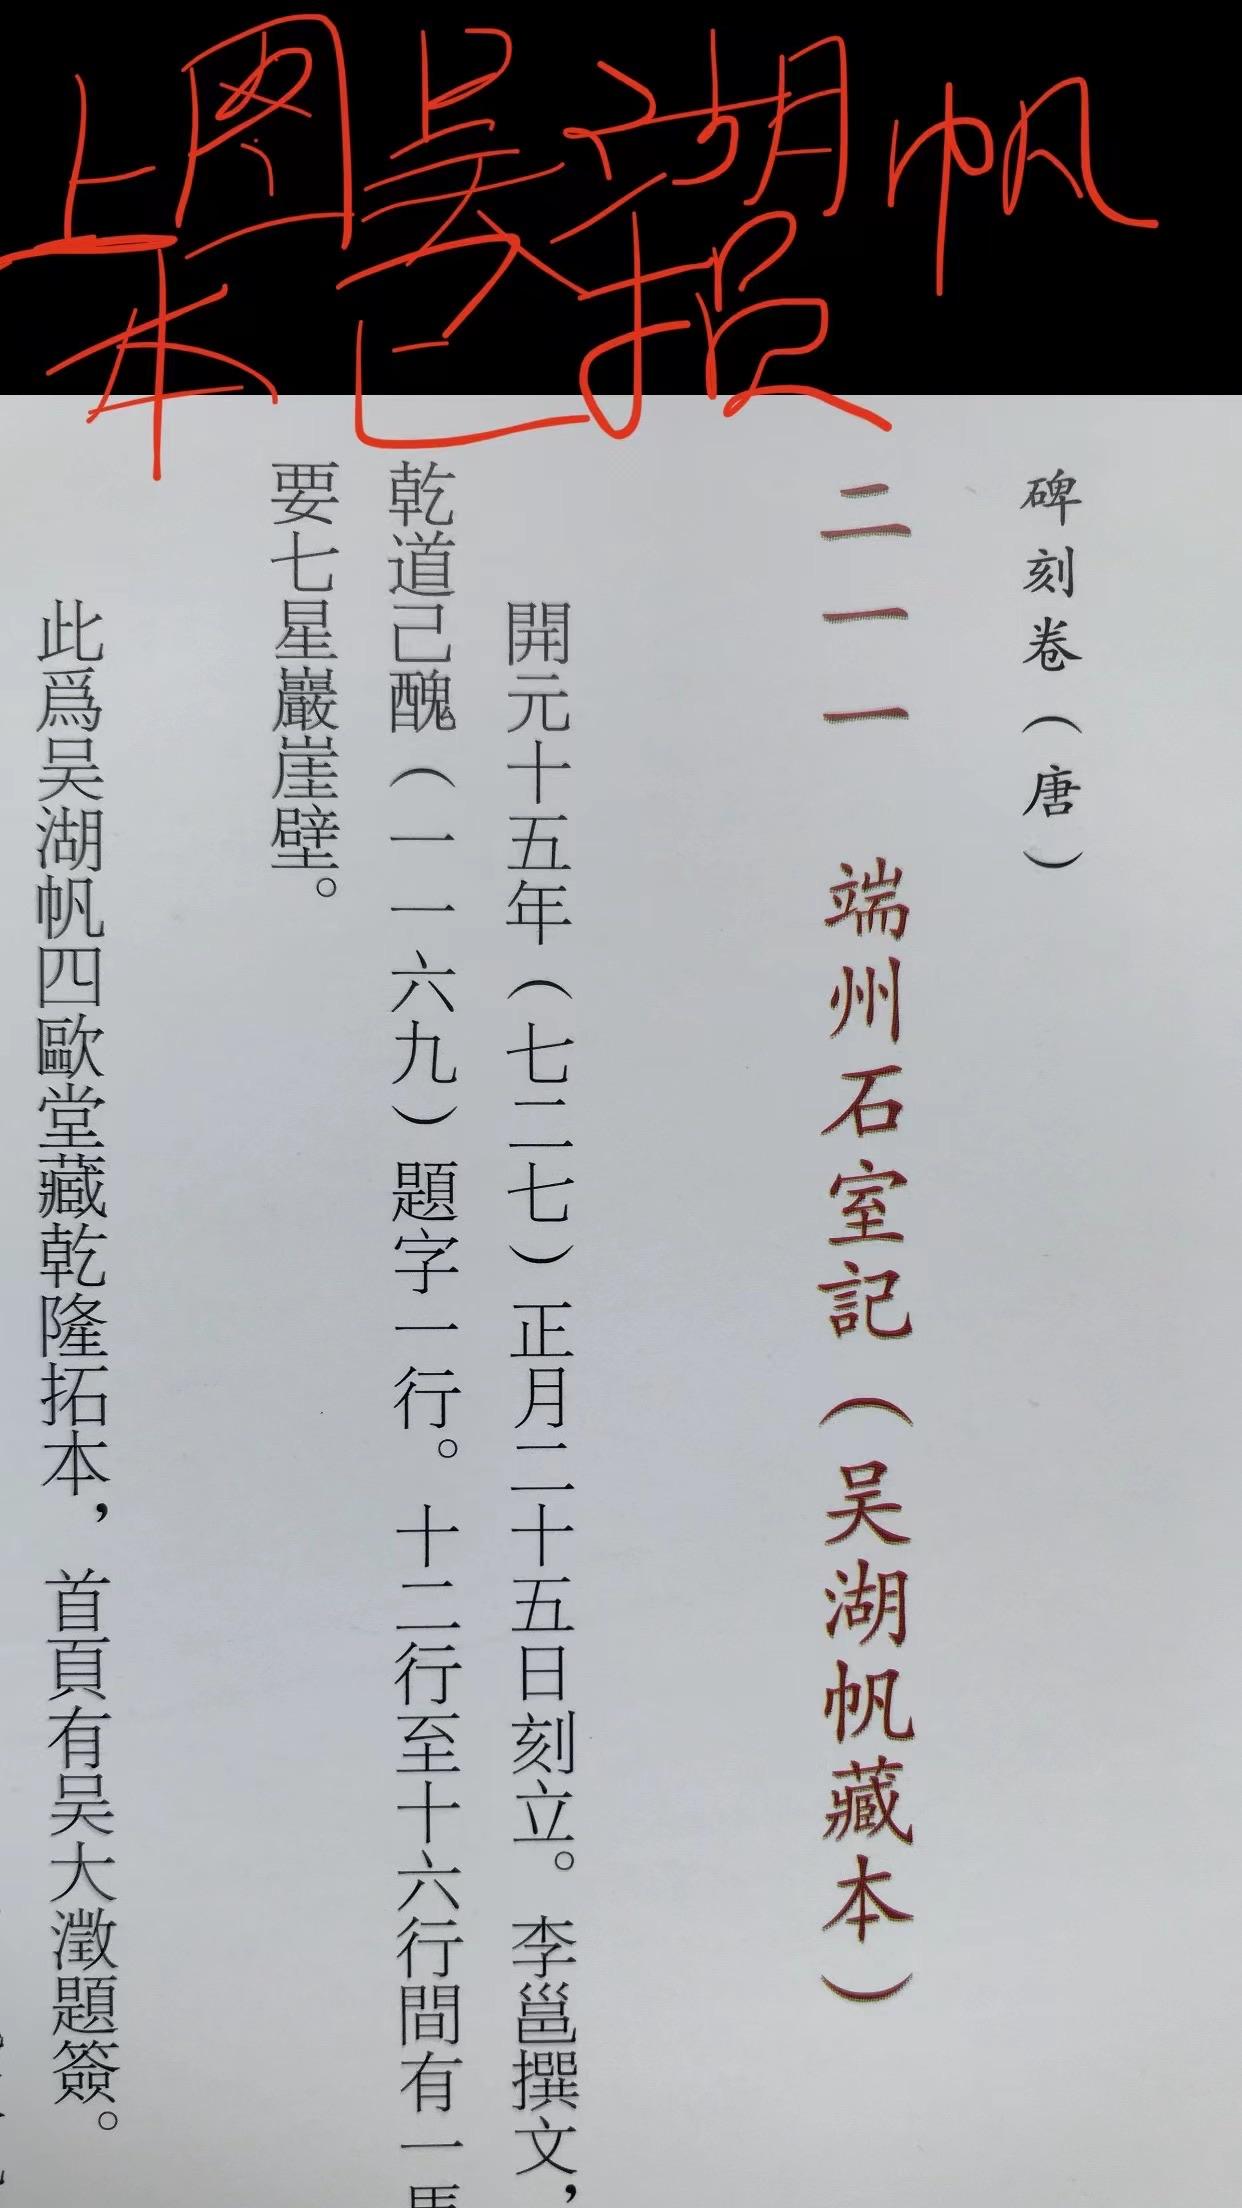 上图吴湖帆
本已损
碑刻卷（唐）
二一一 端州石室記（吴湖帆藏本）
開元十五年（七二七）正月二十五日刻立。李邕撰文，
乾道己醜（一一六九）題字一行。十二行至十六行間有一馬
要七星巖崖壁。
此爲吴湖帆四歐堂藏乾隆拓本，首頁有吴大澂題簽。